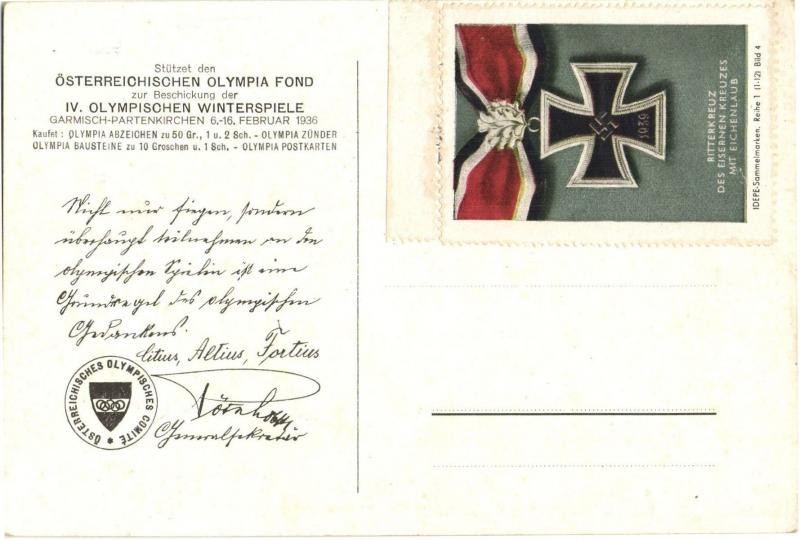 Stützet den
ÖSTERREICHISCHEN OLYMPIA FOND
zur Beschickung der
IV. OLYMPISCHEN WINTERSPIELE
GARMISCH-PARTENKIRCHEN 6.-16. FEBRUAR 1936
Kaufet : OLYMPIA ABZEICHEN zu 50 Gr., 1 u. 2 Sch. - OLYMPIA ZÜNDER
OLYMPIA BAUSTEINE zu 10 Groschen u. 1 Sch. - OLYMPIA POSTKARTEN
Nicht nur siegen, sondern
überhaupt teilnehmen an den
olympischen Spielen ist eine
Grundregel des olympischen
Gedankens.
Citius, Altius, Fortius
Generalsekretär
ÖSTERREICHISCHES OLYMPISCHES COMITÉ
1939
RITTERKREUZ
DES EISERNEN KREUZES
MIT EICHENLAUB
IDEPE-Sammelmarken. Reihe 1 (1-12) Bild 4